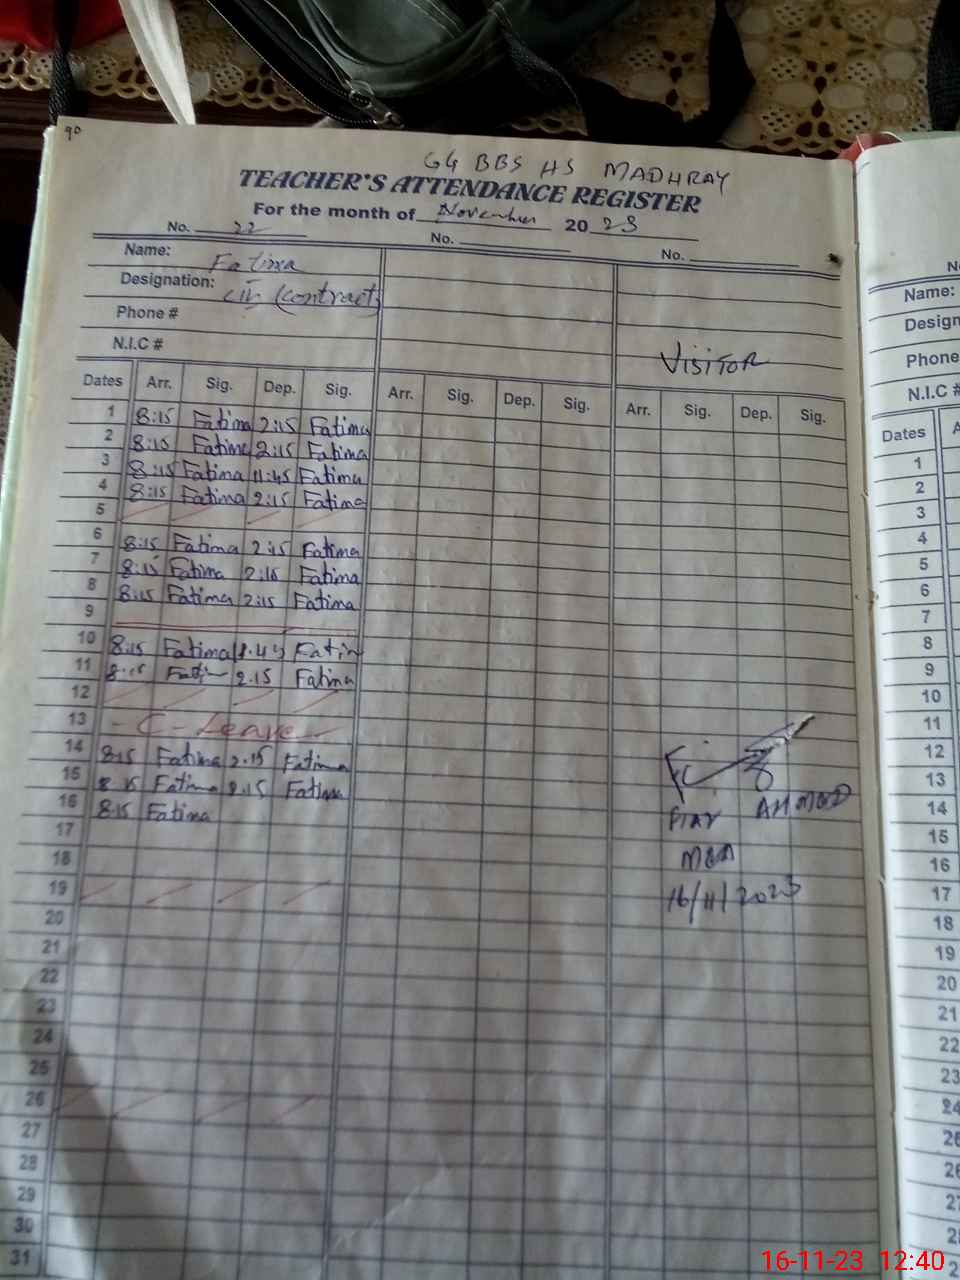 90
GG BBS HS MADHRAY
TEACHER'S ATTENDANCE REGISTER
For the month of November 2023
No. 22 No. No.
Name: Fatima
Designation: (contract)
Phone #
N.I.C #
VISITOR
Dates Arr. Sig. Dep. Sig. Arr. Sig. Dep. Sig. Arr. Sig. Dep. Sig.
1 8:15 Fatima 2:15 Fatima
2 8:15 Fatima 2:15 Fatima
3 8:15 Fatima 11:45 Fatima
4 8:15 Fatima 2:15 Fatima
5
6 8:15 Fatima 2:15 Fatima
7 8:15 Fatima 2:15 Fatima
8 8:15 Fatima 2:15 Fatima
9
10 8:15 Fatima Fatim
11 8:15 Fatim 2.15 Fatima
12
13 - C - Leave -
14 8:15 Fatima 2.15 Fatima
15 8 15 Fatima 2.15 Fatima
16 8:15 Fatima
17
18
19
20
21
22
23
24
25
26
27
28
29
30
31
AHMAD
MEA
16/11/2023
Name:
Design
Phone
N.I.C #
Dates
1
2
3
4
5
6
7
8
9
10
11
12
13
14
15
16
17
18
19
20
21
22
23
24
16-11-23 12:40